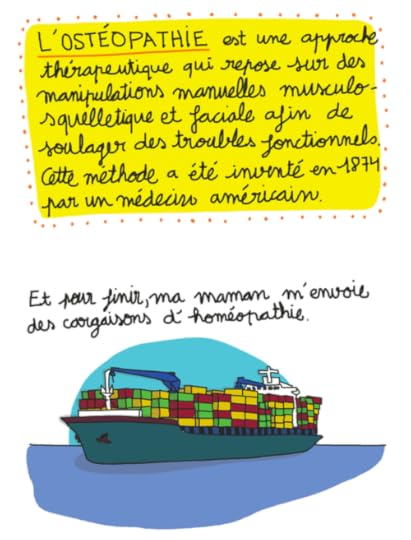 L'OSTÉOPATHIE est une approche
thérapeutique qui repose sur des
manipulations manuelles musculo-
squelletique et faciale afin de
soulager des troubles fonctionnels.
Cette méthode a été inventé en 1874
par un médecin américain.
Et pour finir, ma maman m'envoie
des cargaisons d'homéopathie.